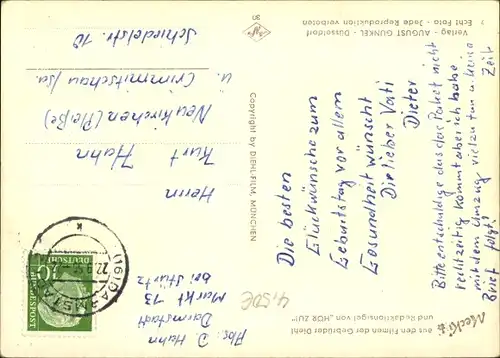 Mecki
aus den Filmen der Gebrüder Diehl
und Redaktionsigel von "HÖR ZU!"
4,50€
Abs: D. Hahn
Darmstadt
Markt 13
bei Stürtz
(16) DARMSTADT
22.9.
k
DEUTSCHE
BUNDESPOST
10
Die besten
Glückwünsche zum
Geburtstag vor allem
Gesundheit wünscht
Dir lieber Vati
Dieter
Bitte entschuldige das das Paket nicht
rechtzeitig kommt aber ich habe
mit dem Umzug viel zu tun u. keine Zeit
Brief folgt!
Copyright by DIEHL-FILM, MÜNCHEN
Herrn
Kurt Hahn
Neukirchen (Pleiße)
ü. Crimmitschau/Sa.
Schiedelstr. 10
Verlag - AUGUST GUNKEL - Düsseldorf
Echt Foto - Jede Reproduktion verboten
31